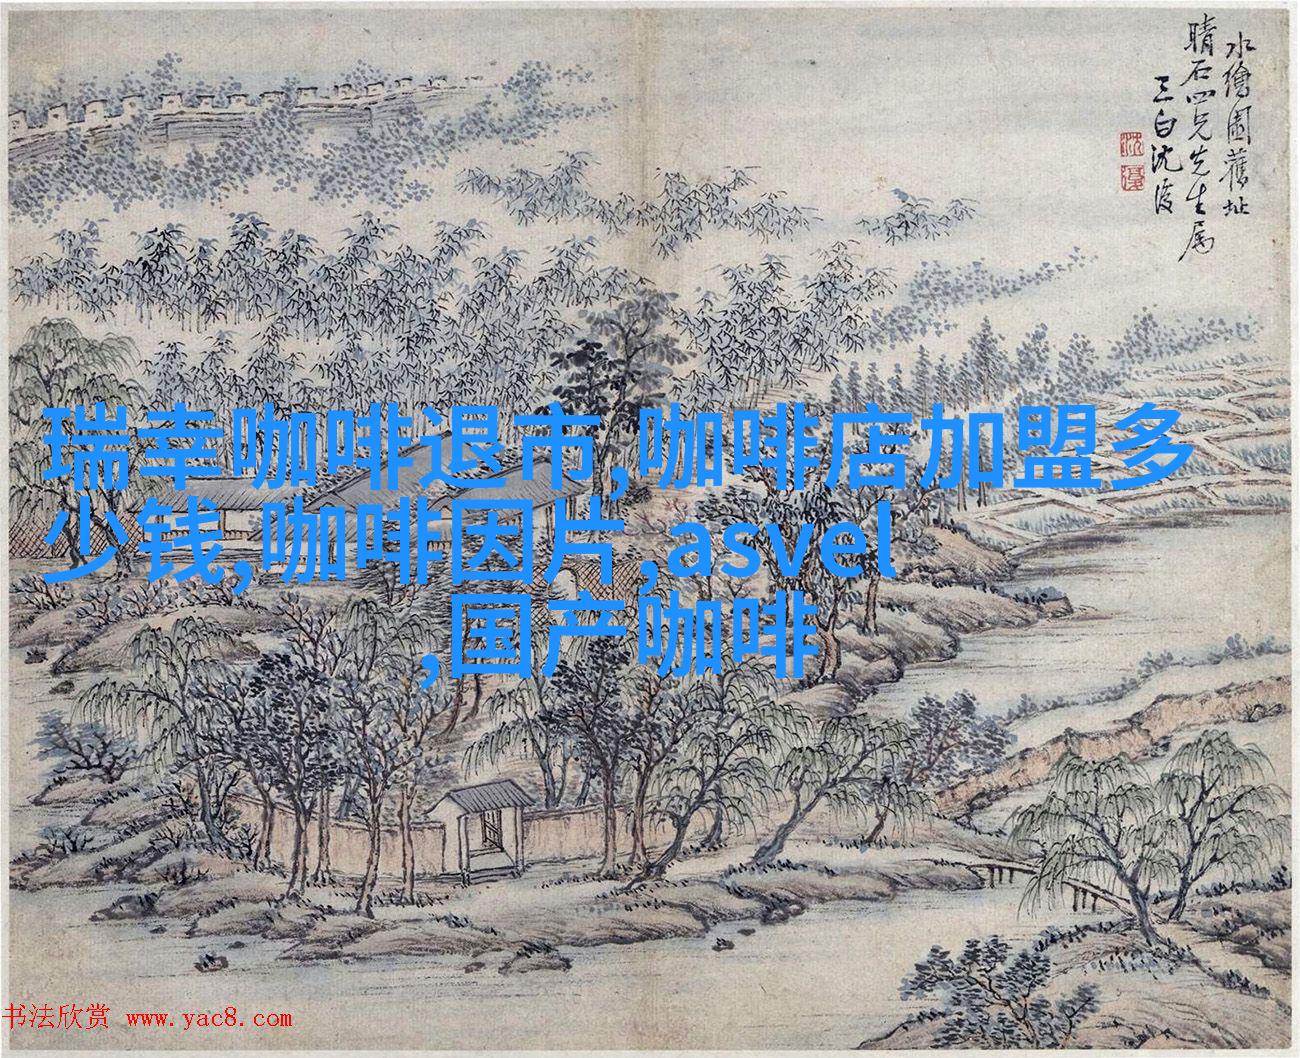 水繪園舊址
晴石四兄先生属
三白沈復
瑞幸咖啡退市,咖啡店加盟多
少钱,咖啡因片,asvel
,国产咖啡
书法欣赏 www.yac8.com